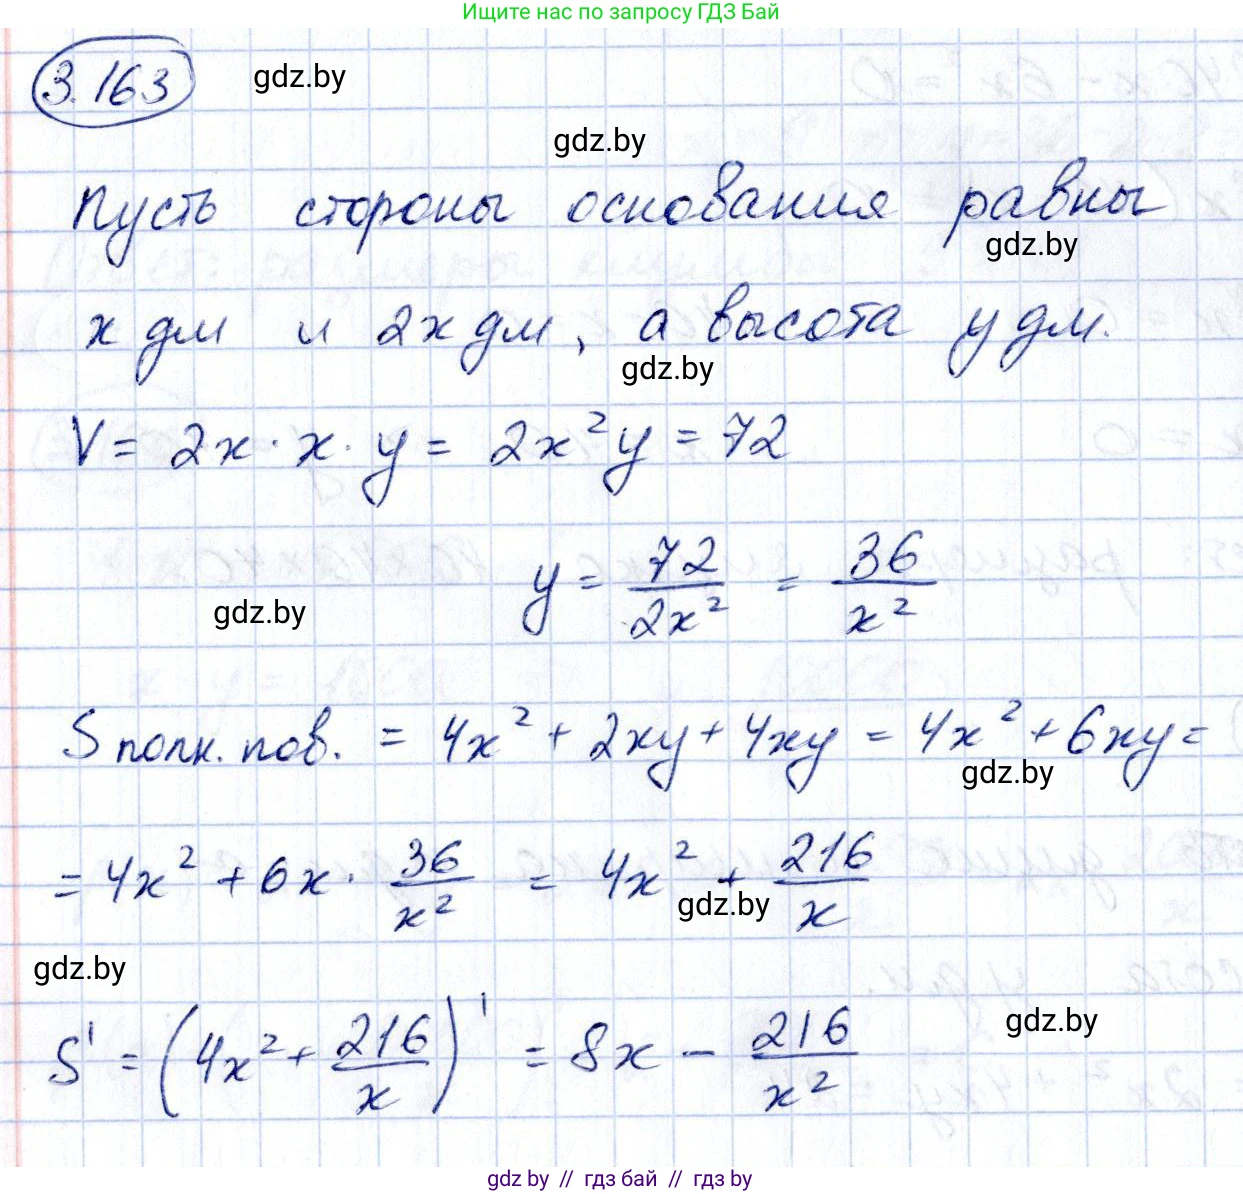 Ищите нас по запросу ГДЗ Бай
3.163
gdz.by
gdz.by
Пусть стороны основания равны
gdz.by
x дм и 2x дм, а высота y дм.
gdz.by
V = 2x · x · y = 2x²y = 72
y = 72/2x² = 36/x²
gdz.by
S полн. пов. = 4x² + 2xy + 4xy = 4x² + 6xy =
gdz.by
= 4x² + 6x · 36/x² = 4x² + 216/x
gdz.by
gdz.by
gdz.by
S' = (4x² + 216/x)' = 8x - 216/x²
gdz by // гдз бай // гдз by